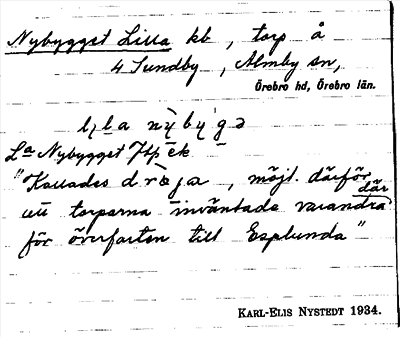 Nybygget Lilla kb, torp å
4 Sundby, Almby sn,
Örebro hd, Örebro län.
la nỳby'gə
La Nybygget Jtp ck
"Kallades dröja, möjl. därför
där
att torparna inväntade varandra
för överfarten till Esplunda"
KARL-ELIS NYSTEDT 1934.